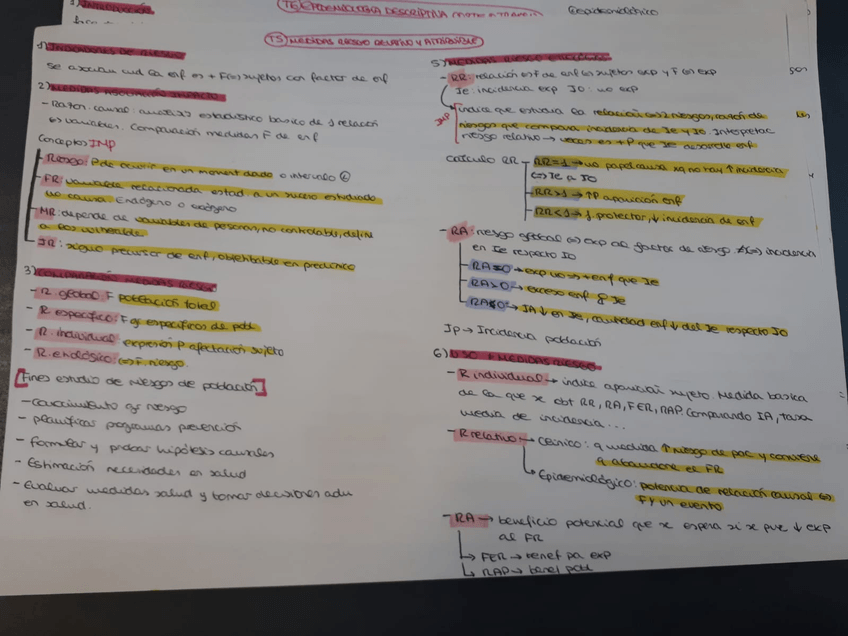 1) INTRODUCCIÓN
T4 EPIDEMIOLOGIA DESCRIPTIVA
Epidemiológico
T5 MEDIDAS RIESGO RELATIVO Y ATRIBUIBLE
1) INDICADORES DE RIESGO
se asocian cud la enf es + F (s) sujetos con factor de enf
2) MEDIDAS ASOCIACIÓN IMPACTO
- Razon causal: analisis estadistico basico de 1 relación
variables. Comparación medidas F de enf
Conceptos IMP
Riesgo: P de ocurrir en un moment dado o intervalo
FR: variable relacionada estad. a un suceso estudiado
no causa. Endógeno o exógeno
MR: depende de variables de personas, no controlable, define
a los vulnerable
IR: signo precursor de enf, objetable en preclinico
3) COMPARACIÓN MEDIDAS RIESGO
- R. global: F población total
- R específico: F gs especificos de pobl
- R. individual: expresión P afectación sujeto
- R. endológico: F. riesgo.
[Fines estudio de riesgo de población]
- conocimiento gs riesgo
- planificas programas prevención
- formular y probar hipótesis causales
- Estimación necesidades en salud
- Evaluar medidas salud y tomar decisiones adu
en salud.
5) MEDIDAS RIESGO
- RR: relación F de enf sujetos exp y F exp
Ie: incidencia exp IO: no exp
IMP
Índice que estudia la relación 2 riesgos, razón de
riesgos que compara incidencia de Ie y IO. Interpretac
riesgo relativo → veces es + P que Ie desarrolle enf
Calculo RR
RR=1 → no papel causa xq no hay ↑ incidencia
Ie a IO
RR>1 → ↑P aparición enf
RR<1 → f. protector, ↓ incidencia de enf
- RA: riesgo global exp al factor de riesgo incidencia
en Ie respecto IO
RA=0 → exp no → + enf que Ie
RA>0 → exceso enf Ie
RA<0 → IA ↓ en Ie, cantidad enf ↓ del Ie respecto IO
Ip → Incidencia población
6) USO MEDIDAS RIESGO
- R individual → indice aparición sujeto. Medida basica
de la que se obt RR, RA, FER, RAP. Comparando IA, tasa
media de incidencia...
- R relativo → Clínico: q medida ↑ riesgo de pac y conviene
q abandone el FR
Epidemiológico: potencia de relación causal
F y un evento
- RA → beneficio potencial que se espera si se pue ↓ exp
al FR
FER → benef pa exp
RAP → benef pobl